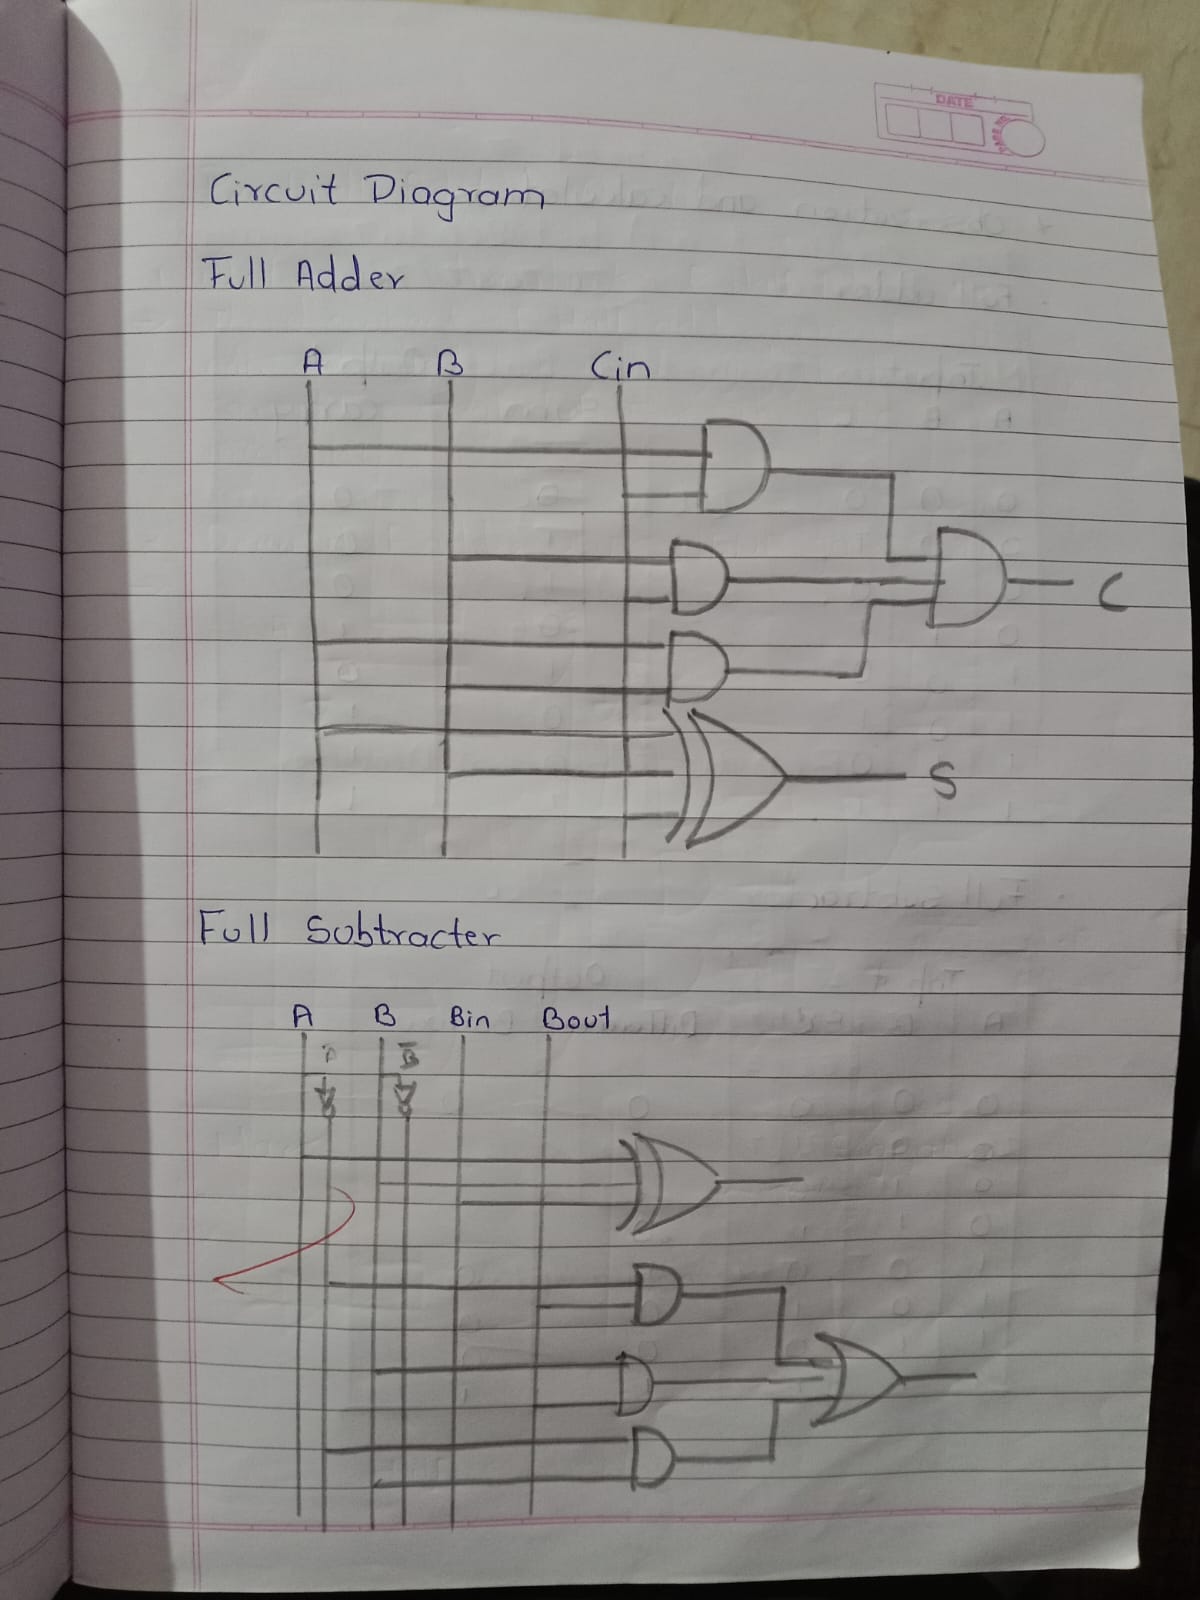 DATE
Circuit Diagram
Full Adder
A B Cin
C
S
Full Subtracter
A B Bin Bout
B̅